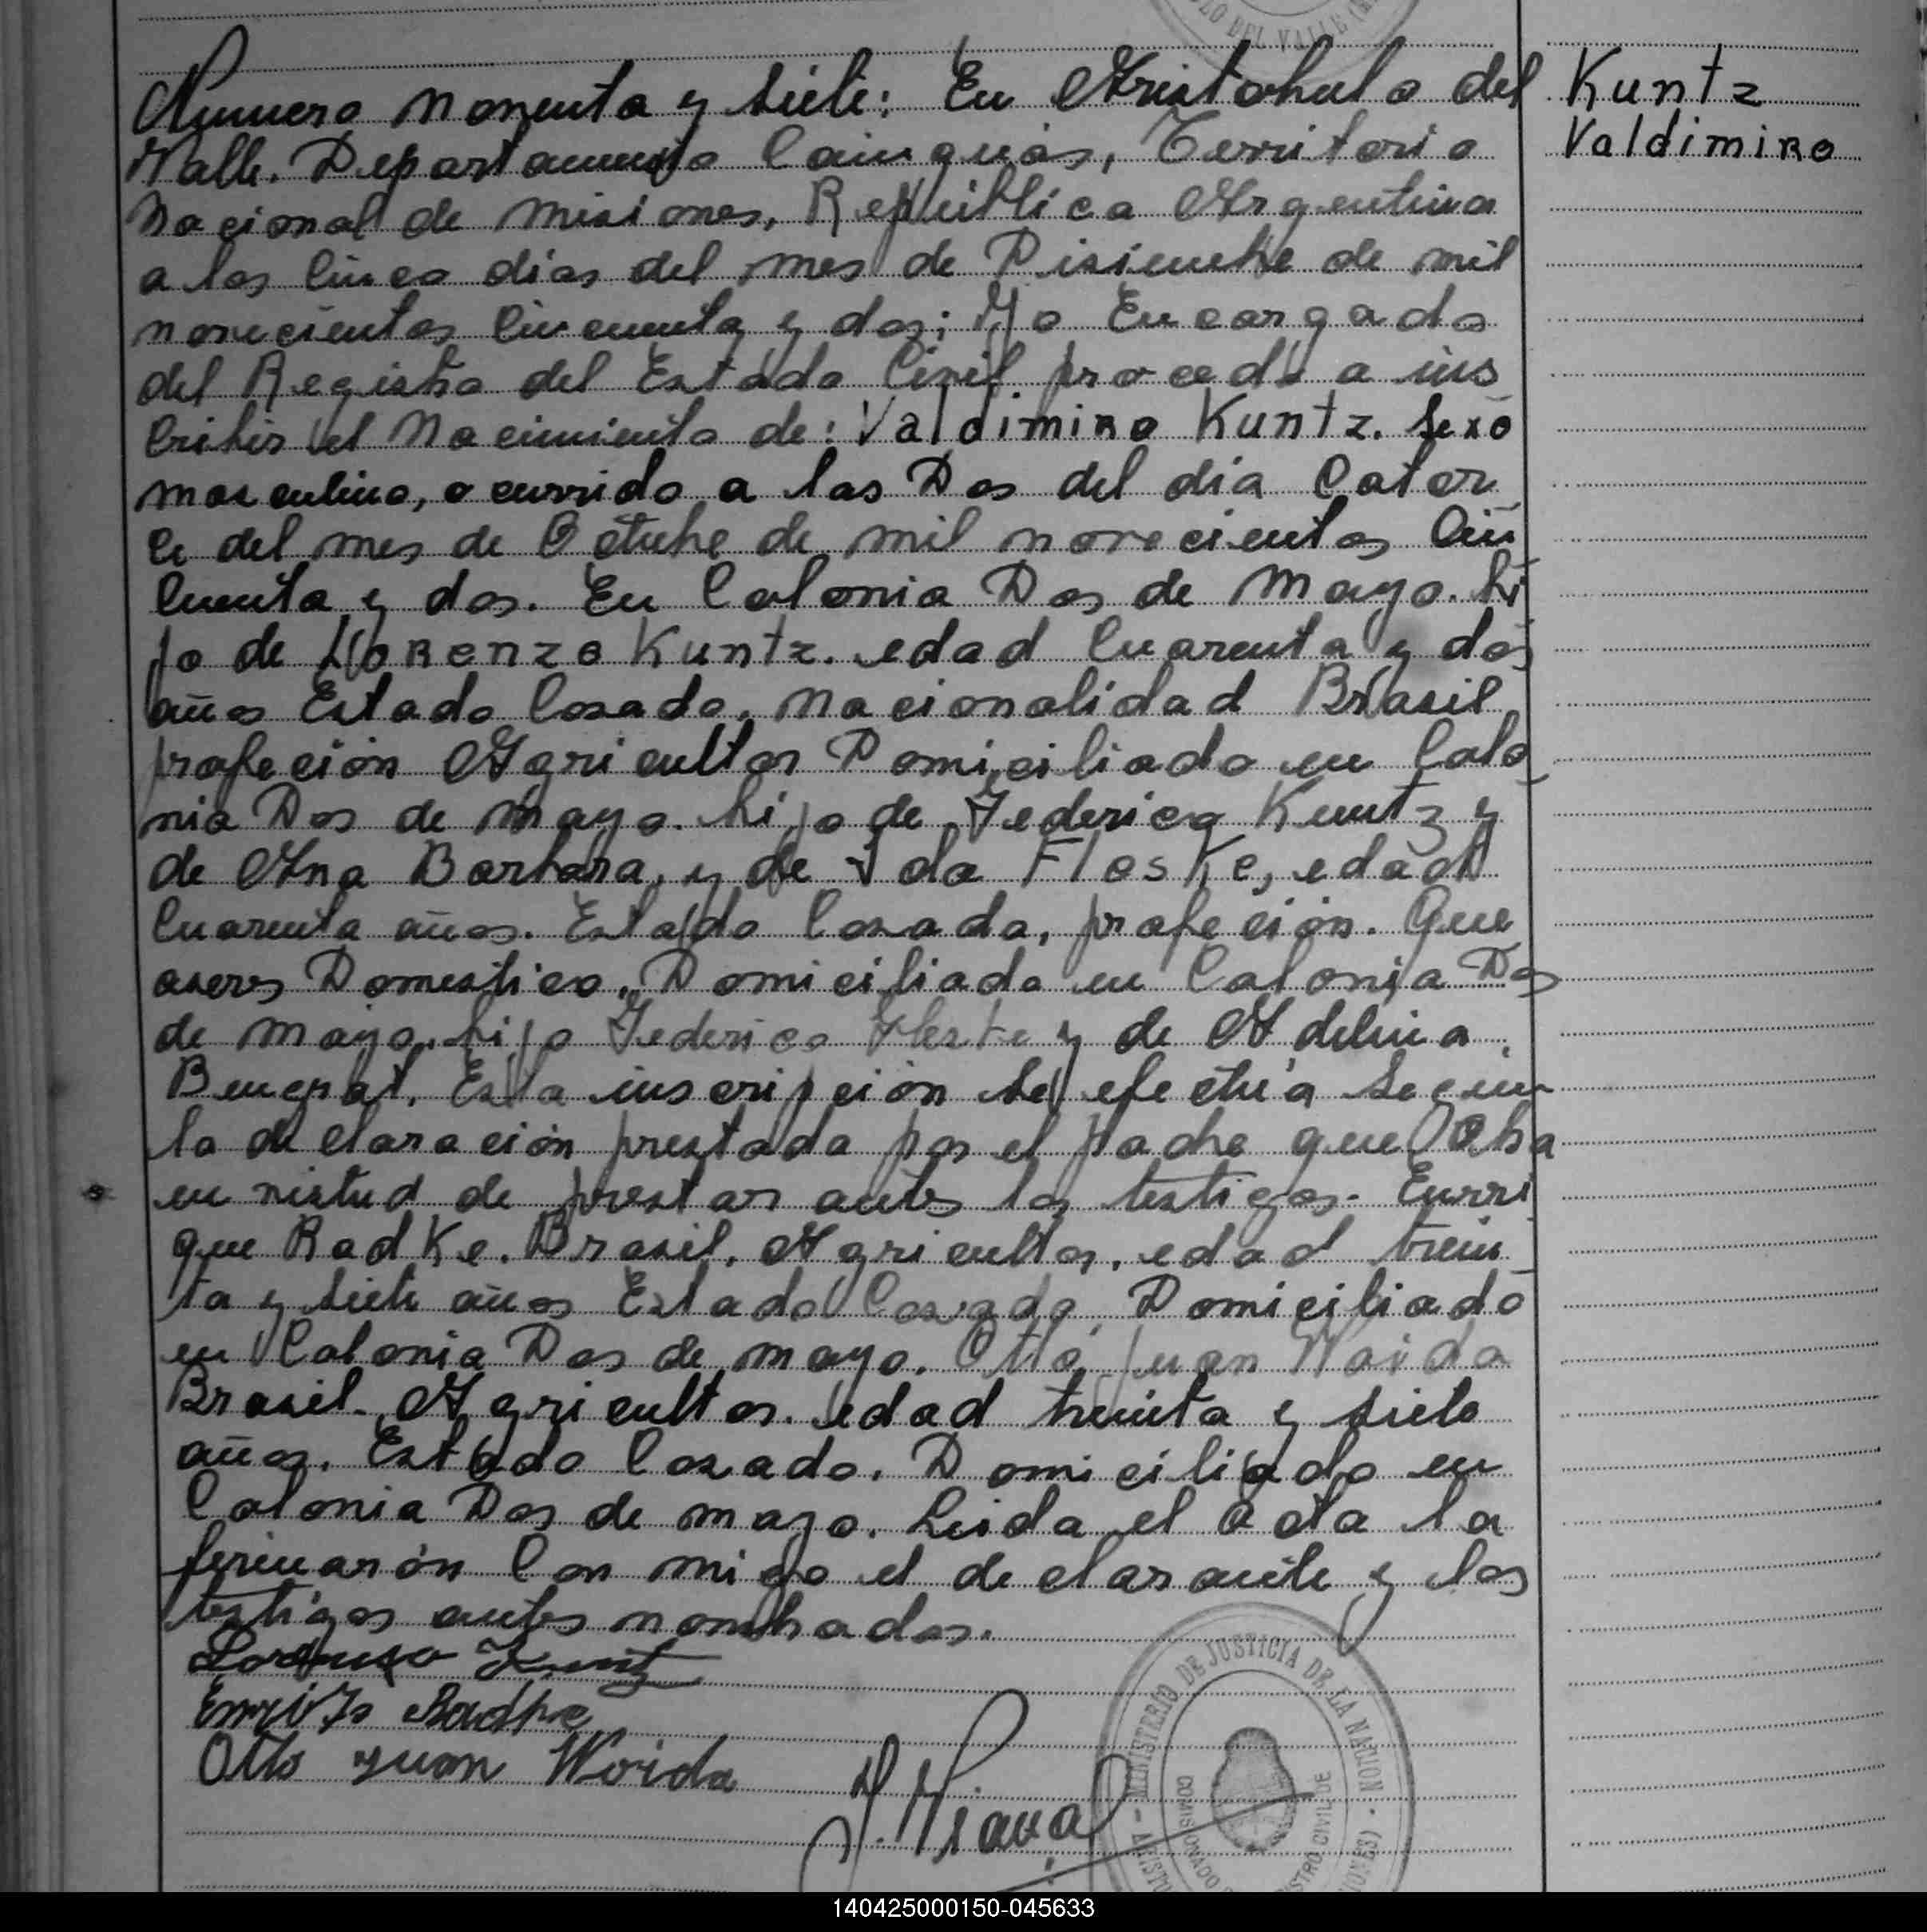 OLO DEL VALLE (MI
Numero nonenta y siete: En Aristobulo del
Valle. Departamento Cainguás, Territorio
Nacional de misiones, República Argentina
a los Cinco dias del mes de Disiembre de mil
novecientos Cincuenta y dos; Yo Encargado
del Registro del Estado Civil procedo a ins
Cribir el Nacimiento de: Valdimiro Kuntz. Sexo
masculino, ocurrido a las Dos del dia Cator
ce del mes de Octubre de mil novecientos Cin
Cuenta y dos. En Colonia Dos de Mayo. hi
jo de Lorenzo Kuntz. edad Cuarenta y dos
años Estado Casado, Nacionalidad Brasil
profeción Agricultor Domiciliado en Colo
nia Dos de Mayo. hijo de Federico Kuntz y
de Ana Barbara, y de Ida Fleske, edad
Cuarenta años. Estado Casada, profeción. Que
aseres Domestico. Domiciliada en Colonia Dos
de mayo. hijo Federico Fleske y de Adelina
Esta inscripción se efectúa segun
la declaración prestada por el padre que Obra
en vistud de prestar antes los testigos. Enrri
que Radke. Brasil. Agricultor, edad trein
ta y siete años Estado Casado, Domiciliado
en Colonia Dos de mayo. Otto Juan Woida
Brasil. Agricultor. edad treinta y siete
años. Estado Casado. Domiciliado en
Colonia Dos de mayo. Leida el acta la
firmarón Con migo el declarante y los
testigos antes nombrados.
Lorenso Kuntz
Radke
Otto Juan Woida
MINISTERIO DE JUSTICIA DE LA NACION
COMISIONADO
STRO CIVIL DE
ARISTO
IONES)
Kuntz
Valdimiro
140425000150-045633